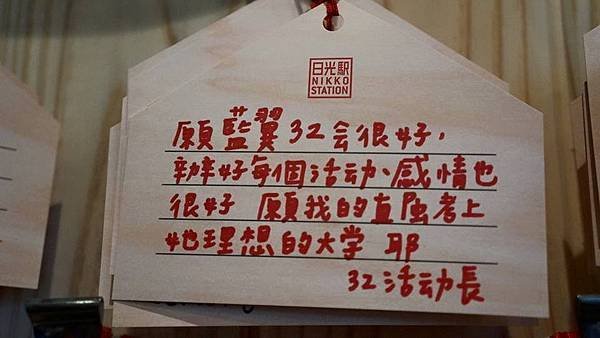 日光駅
NIKKO
STATION
願藍翼32会很好,
辦好每個活动、感情也
很好 願我的直隝考上
她理想的大学 耶
32活动長